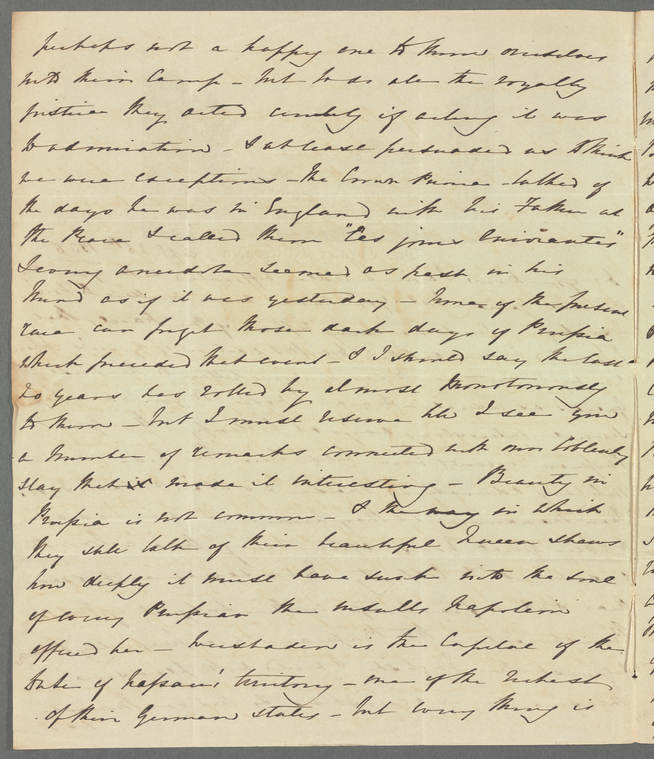 perhaps not a happy one to throw ourselves
into their Camp - but to do all the royalty
justice they acted civilly if acting it was
to admiration - & at least persuaded us to think
we were exceptions - The Crown Prince talked of
the days he was in England with his Father at
the Peace & called them "Les jours enivrantes"
& every anecdote seemed as fresh in his
Mind as if it was yesterday - None of the present
race can forget those dark days of Prussia
which preceded that event & I should say the last
20 years has rolled by almost Monotonously
to them - but I must reserve till I see you
a number of remarks connected with our Coblentz
stay that made it interesting - Beauty in
Prussia is not common - & the way in which
they still talk of their beautiful Queen shews
how deeply it must have sunk into the soul
of every Prussian the insults Napoleon
offered her - Wiesbaden is the Capital of the
Duke of Nassau's territory - one of the richest
of their German states - but every thing is